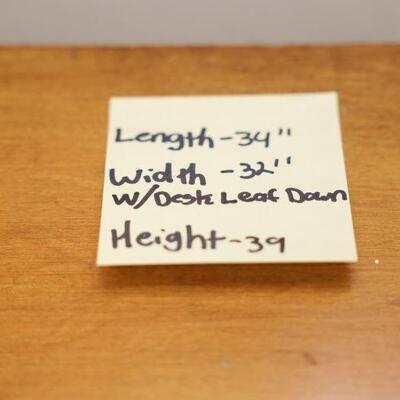 Length - 34"
Width - 32"
W/Desk Leaf Down
Height - 39